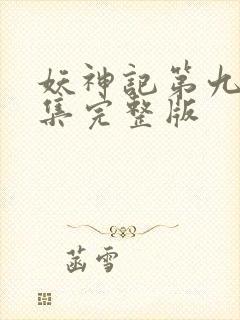 妖神記第九
集完整版
菡雪